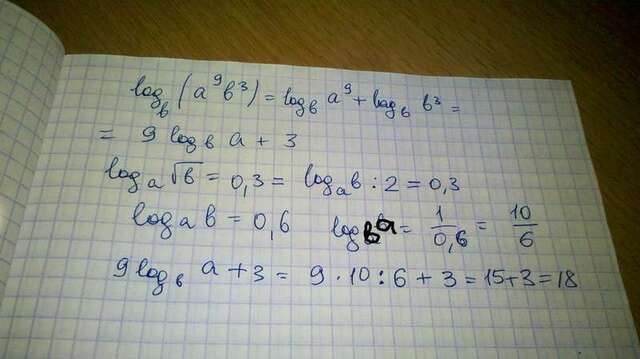 log_b (a⁹b³) = log_b a⁹ + log_b b³ =
= 9 log_b a + 3
log_a √b = 0,3 = log_a b : 2 = 0,3
log_a b = 0,6 log_b a = 1/0,6 = 10/6
9 log_b a + 3 = 9 · 10 : 6 + 3 = 15 + 3 = 18